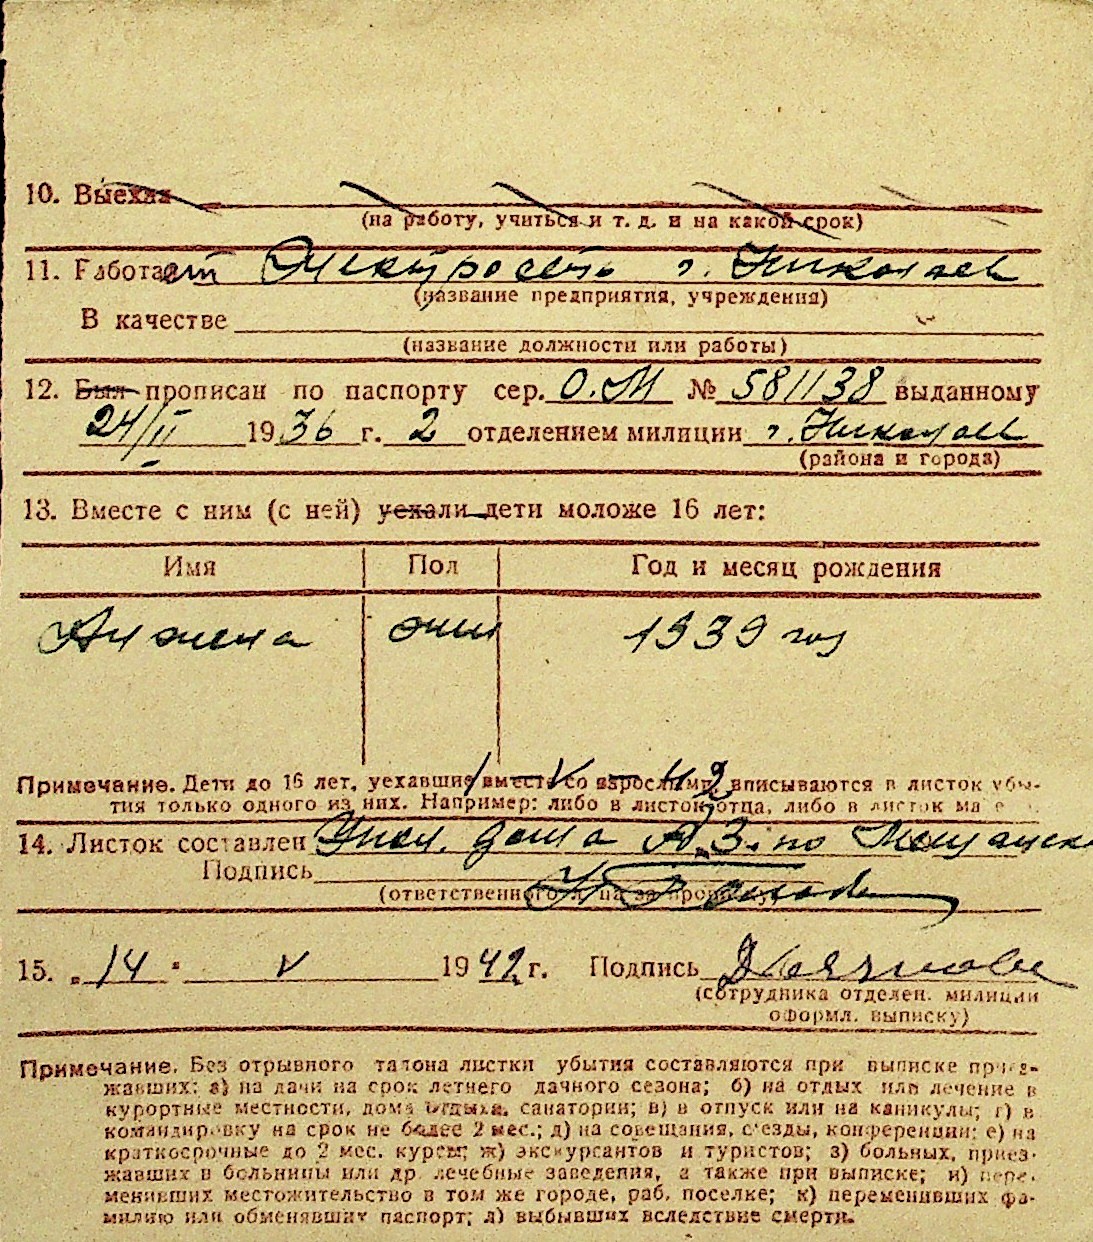 10. Выехал
(на работу, учиться и т. д. и на какой срок)
11. Работает Электросеть г. Николаев
(название предприятия, учреждения)
В качестве
(название должности или работы)
12. Был прописан по паспорту сер. О.М № 581138 выданному
24/II 1936 г. 2 отделением милиции г. Николаев
(района и города)
13. Вместе с ним (с ней) уехали дети моложе 16 лет:
Имя Пол Год и месяц рождения
Анжела жен 1939 год
Примечание. Дети до 16 лет, уехавшие вместе со взрослыми, вписываются в листок убы-
тия только одного из них. Например: либо в листок отца, либо в листок
1-V-42
14. Листок составлен дома А.З. по
Подпись
(ответственного за прописку)
15. „14" V 1942 г. Подпись
(сотрудника отделен. милиции
оформл. выписку)
Примечание. Без отрывного талона листки убытия составляются при выписке приез-
жавших: а) на дачи на срок летнего дачного сезона; б) на отдых или лечение в
курортные местности, дома отдыха, санатории; в) в отпуск или на каникулы; г) в
командировку на срок не более 2 мес.; д) на совещания, съезды, конференции; е) на
краткосрочные до 2 мес. курсы; ж) экскурсантов и туристов; з) больных, приез-
жавших в больницы или др. лечебные заведения, а также при выписке; и) пере-
менивших местожительство в том же городе, раб. поселке; к) переменивших фа-
милию или обменявших паспорт; л) выбывших вследствие смерти.